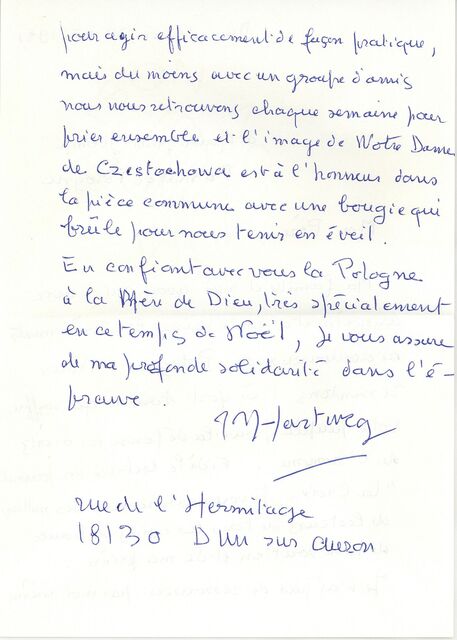 pour agir efficacement de façon pratique,
mais du moins avec un groupe d'amis
nous nous retrouvons chaque semaine pour
prier ensemble et l'image de Notre Dame
de Czestochowa est à l'honneur dans
la pièce commune avec une bougie qui
brûle pour nous tenir en éveil.
En confiant avec vous la Pologne
à la Mère de Dieu, très spécialement
en ce temps de Noël, je vous assure
de ma profonde solidarité dans l'é-
preuve.
rue de l'Hermitage
18130 Dun sur Auron